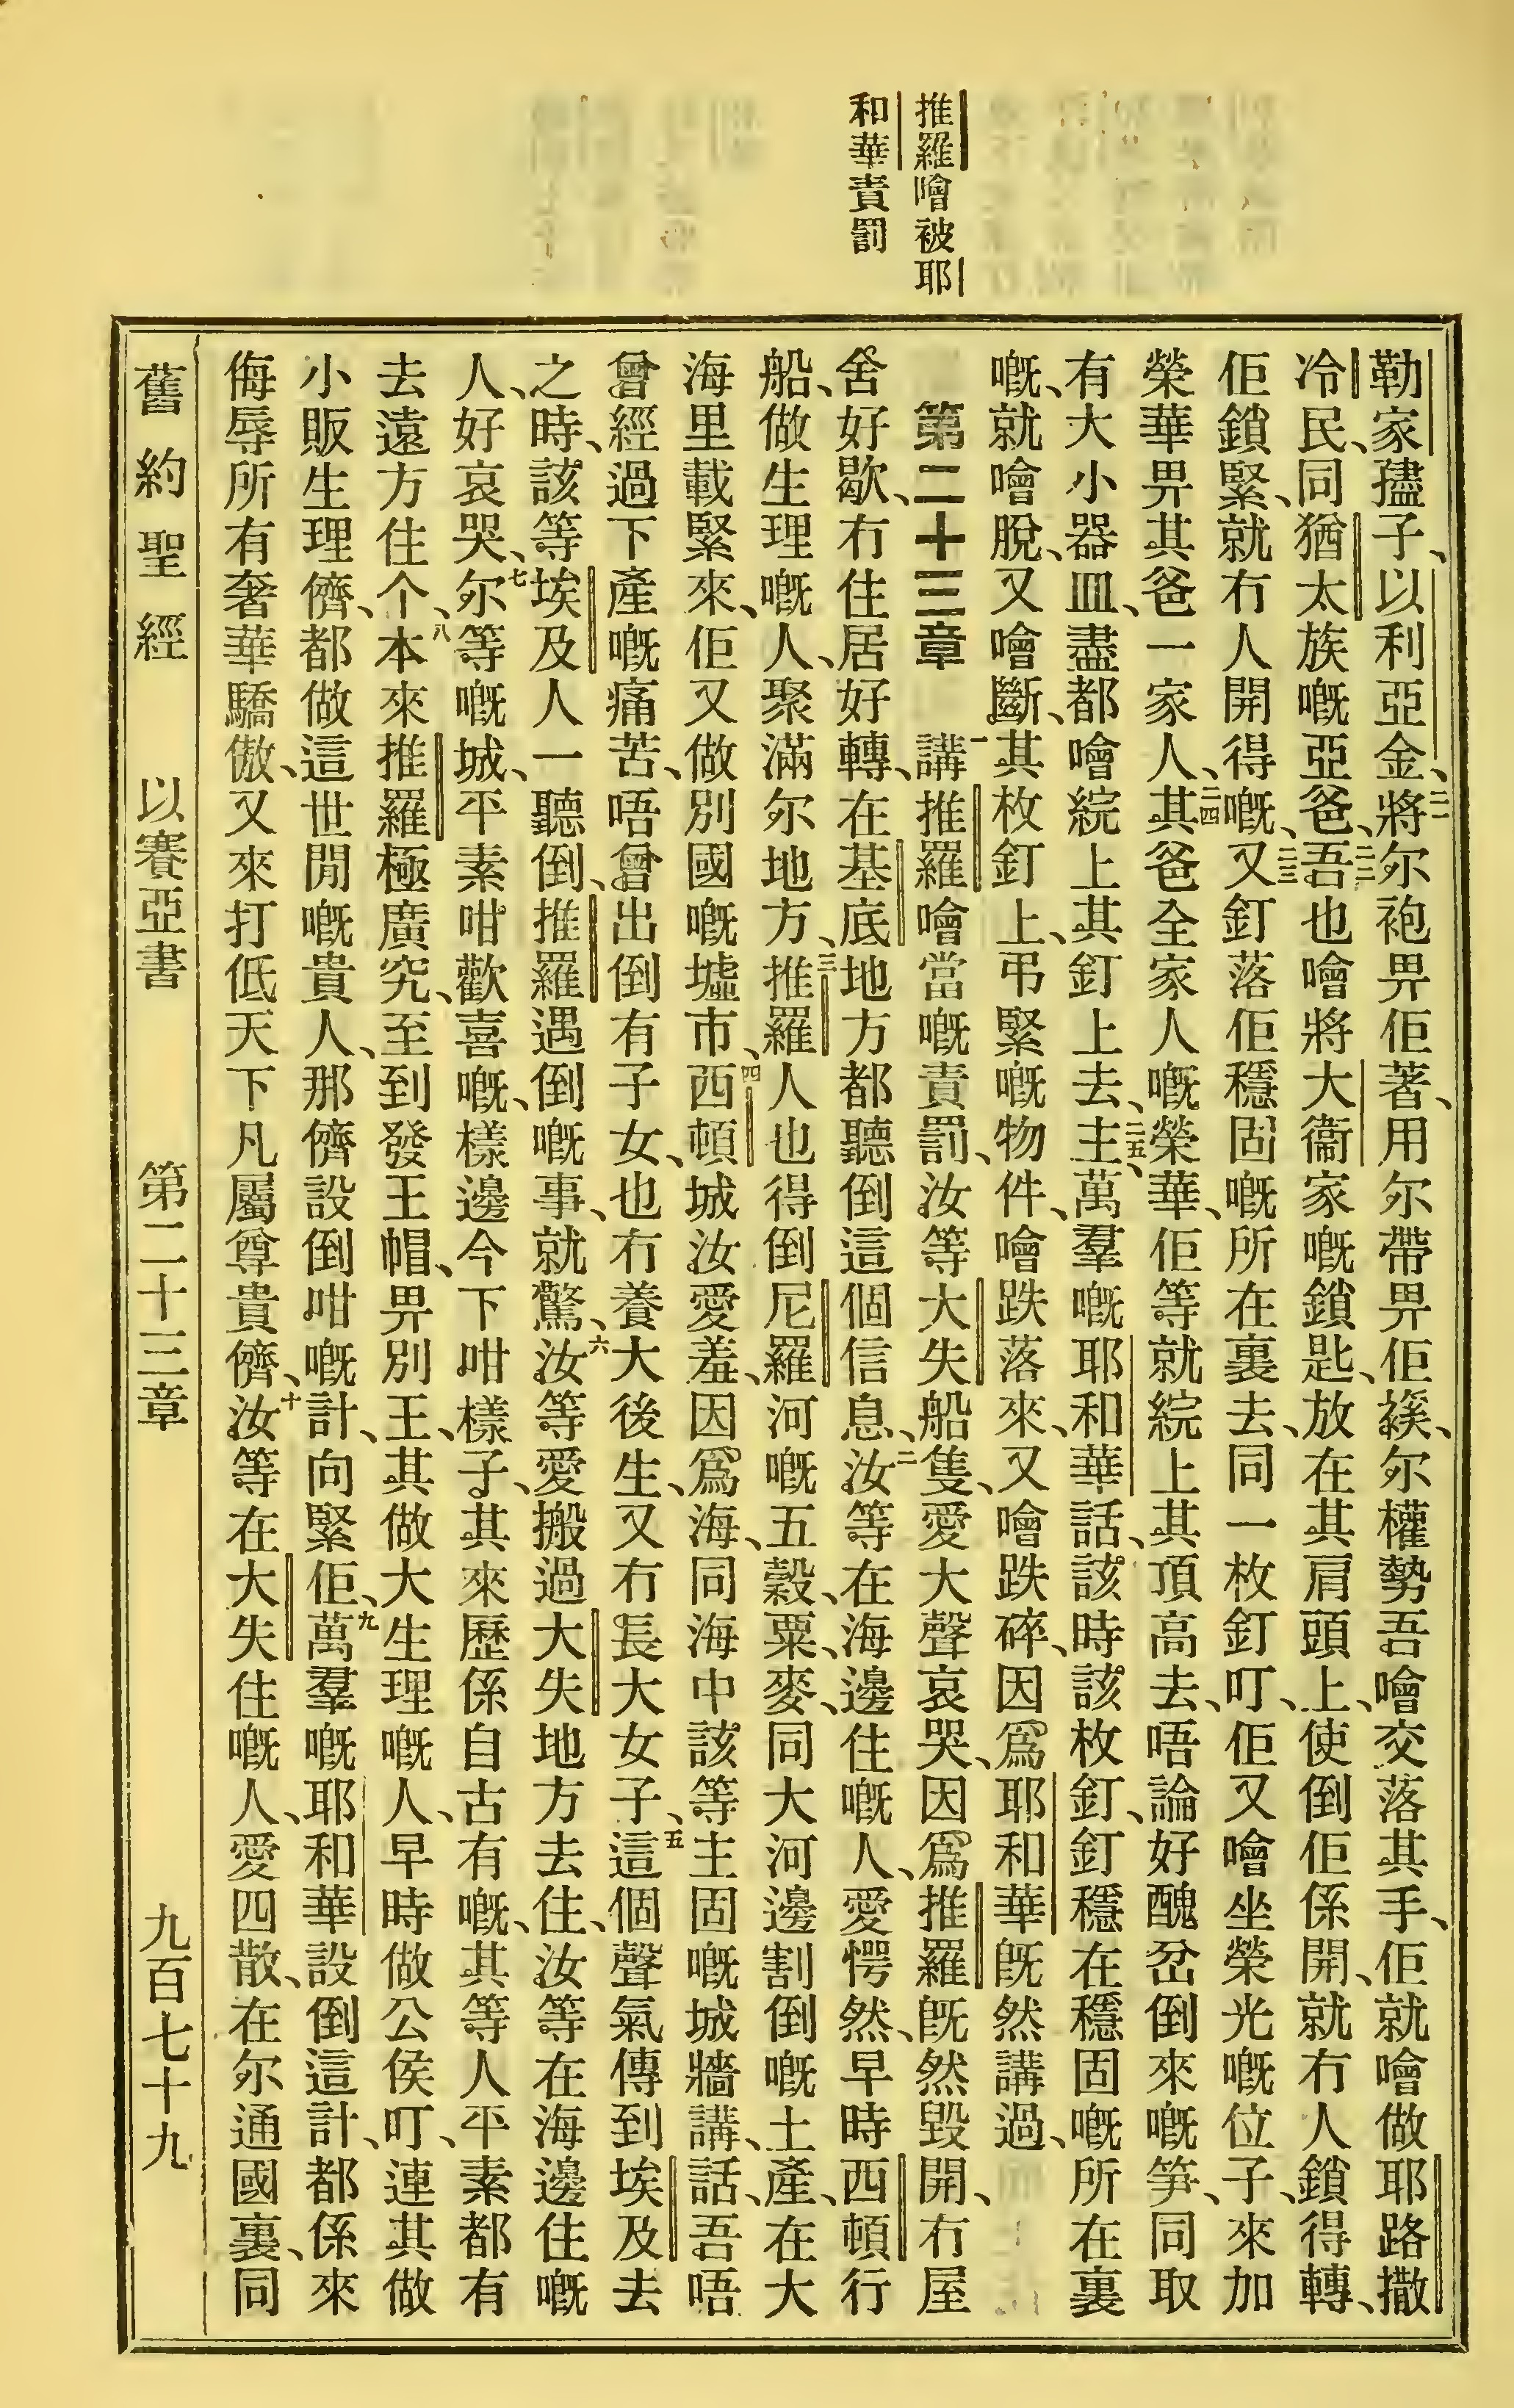 推羅噲被耶
和華責罰
勒家孻子、以利亞金、二一將尔袍畀佢著、用尔帶畀佢䙆、尔權勢吾噲交落其手、佢就噲做耶路撒
冷民、同猶太族嘅亞爸、二二吾也噲將大衞家嘅鎖匙、放在其肩頭上、使倒佢係開、就冇人鎖得轉、
佢鎖緊、就冇人開得嘅、二三又釘落佢穩固嘅所在裏去、同一枚釘叮、佢又噲坐榮光嘅位子、來加
榮華畀其爸一家人、二四其爸全家人嘅榮華、佢等就綂上其頂高去、唔論好醜岔倒來嘅笋、同取
有大小器皿、盡都噲綂上其釘上去、二五主、萬羣嘅耶和華話、該時該枚釘、釘穩在穩固嘅所在裏
嘅、就噲脫、又噲斷、其枚釘上、弔緊嘅物件、噲跌落來、又噲跌碎、因爲耶和華旣然講過、
第二十三章 一講推羅噲當嘅責罰、汝等大失船隻、愛大聲哀哭、因爲推羅旣然毀開、冇屋
舍好歇、冇住居好轉、在基底地方都聽倒這個信息、二汝等在海邊住嘅人、愛愕然、早時西頓行
船、做生理嘅人、聚滿尔地方、三推羅人也得倒尼羅河嘅五穀、粟麥、同大河邊割倒嘅土產、在大
海里載緊來、佢又做別國嘅墟市、四西頓城汝愛羞、因爲海、同海中該等主固嘅城牆講、話、吾唔
曾經過下產嘅痛苦、唔曾出倒有子女、也冇養大後生、又冇長大女子、五這個聲氣傳到埃及去
之時、該等埃及人一聽倒、推羅遇倒嘅事、就驚、六汝等愛搬過大失地方去住、汝等在海邊住嘅
人、好哀哭、七尔等嘅城、平素咁歡喜嘅、樣邊今下咁樣子、其來歷係自古有嘅、其等人平素都有
去遠方住个、八本來推羅極廣究、至到發王帽、畀別王、其做大生理嘅人、早時做公侯叮、連其做
小販生理儕、都做這世閒嘅貴人、那儕設倒咁嘅計、向緊佢、九萬羣嘅耶和華設倒這計、都係來
侮辱所有奢華驕傲、又來打低天下凡屬尊貴儕、十汝等在大失住嘅人、愛四散、在尔通國裏、同
舊約聖經 以賽亞書 第二十三章 九百七十九